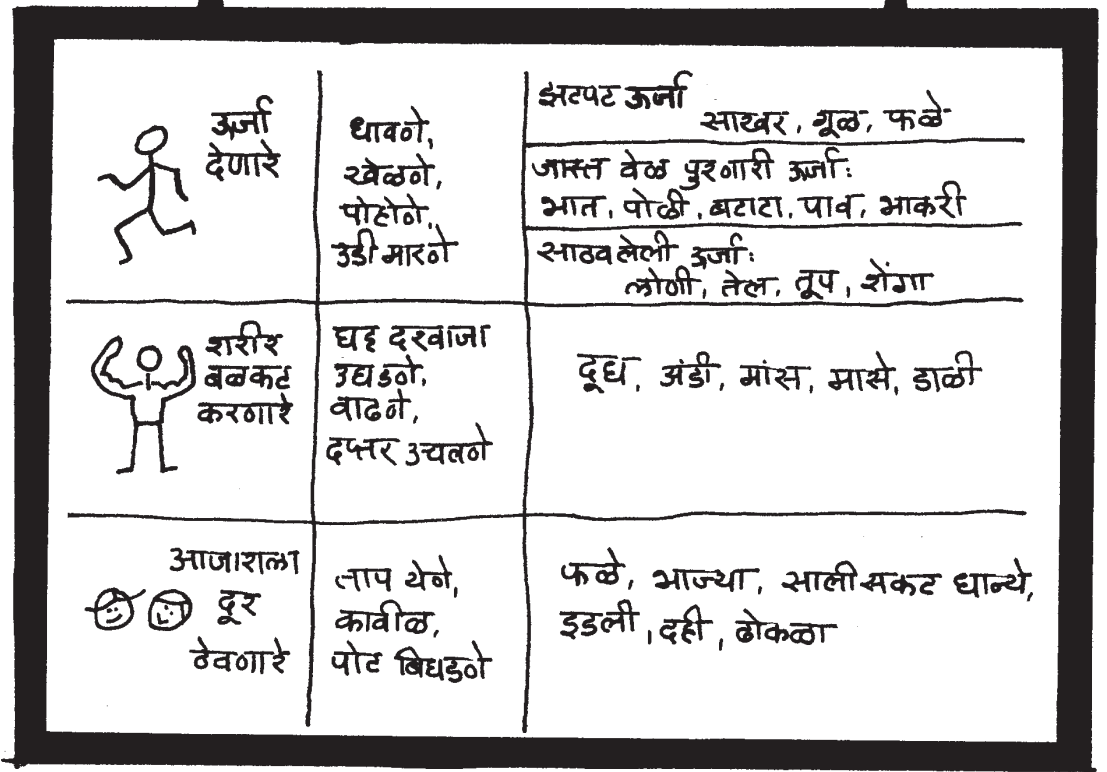 ऊर्जा
देणारे
धावणे,
खेळणे,
पोहोणे,
उडी मारणे
झटपट ऊर्जा
साखर, गूळ, फळे
जास्त वेळ पुरणारी ऊर्जा:
भात, पोळी, बटाटा, पाव, भाकरी
साठवलेली ऊर्जा:
लोणी, तेल, तूप, शेंगा
शरीर
बळकट
करणारे
घट्ट दरवाजा
उघडणे,
वाढणे,
दप्तर उचलणे
दूध, अंडी, मांस, मासे, डाळी
आजाराला
दूर
ठेवणारे
ताप येणे,
कावीळ,
पोट बिघडणे
फळे, भाज्या, सालीसकट धान्ये,
इडली, दही, ढोकळा